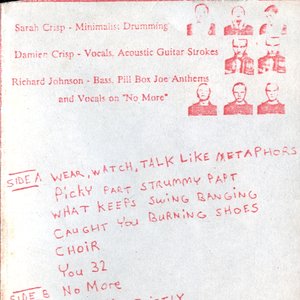 Sarah Crisp - Minimalist Drumming
Damien Crisp - Vocals, Acoustic Guitar Strokes
Richard Johnson - Bass, Pill Box Joe Anthems
and Vocals on "No More"
SIDE A WEAR, WATCH, TALK LIKE METAPHORS
PICKY PART STRUMMY PART
WHAT KEEPS SWING BANGING
CAUGHT YOU BURNING SHOES
CHOIR
You 32
SIDE B No More